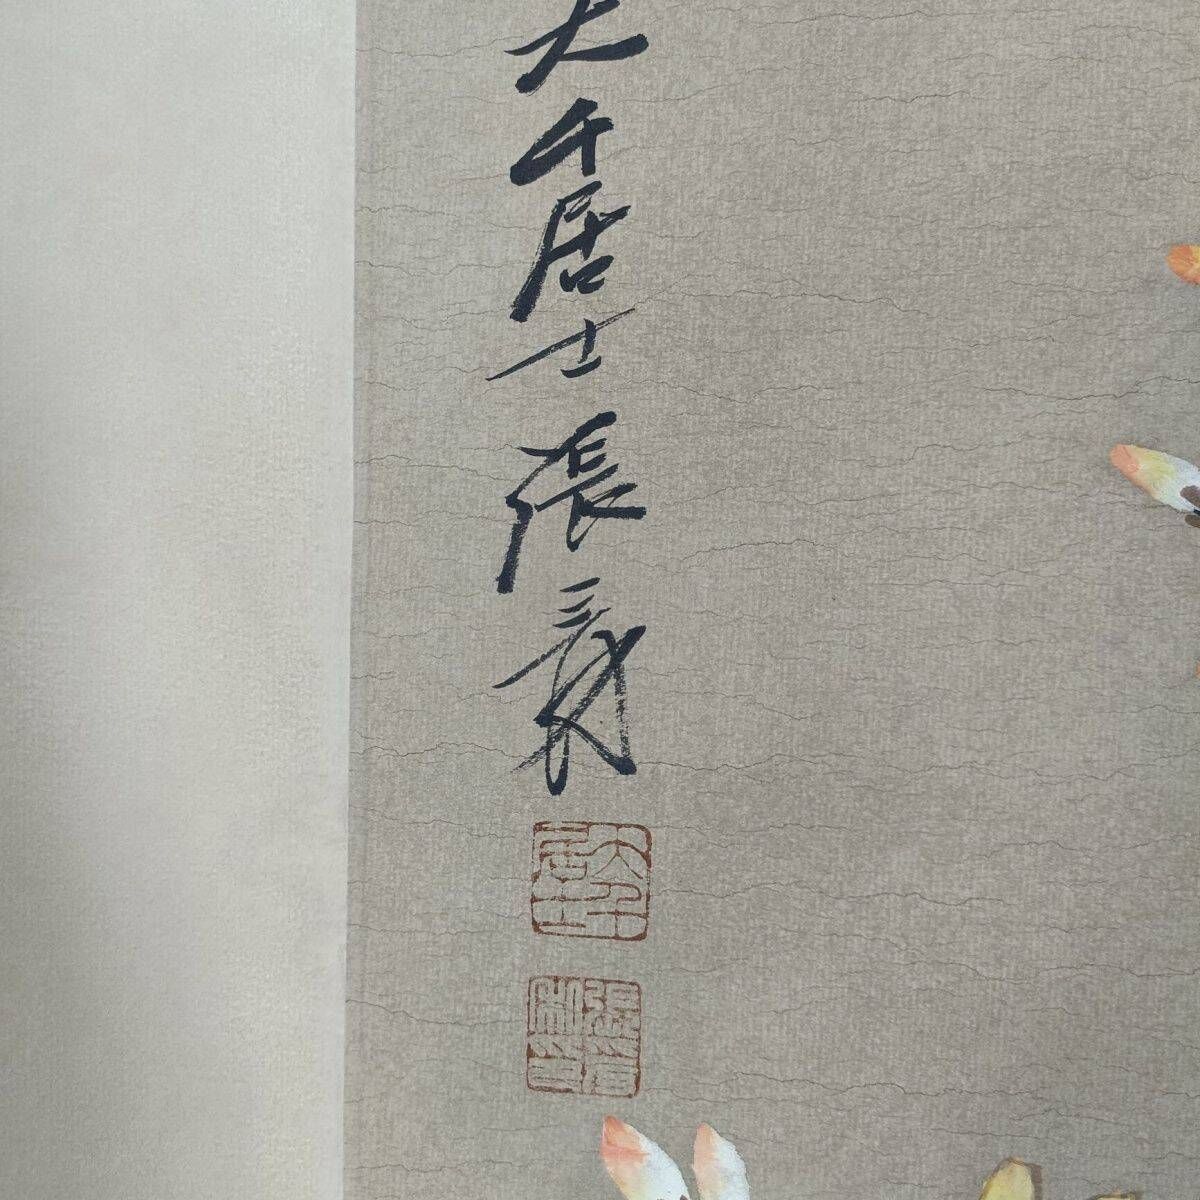 大千居士張爰
大千居士
張爰私印